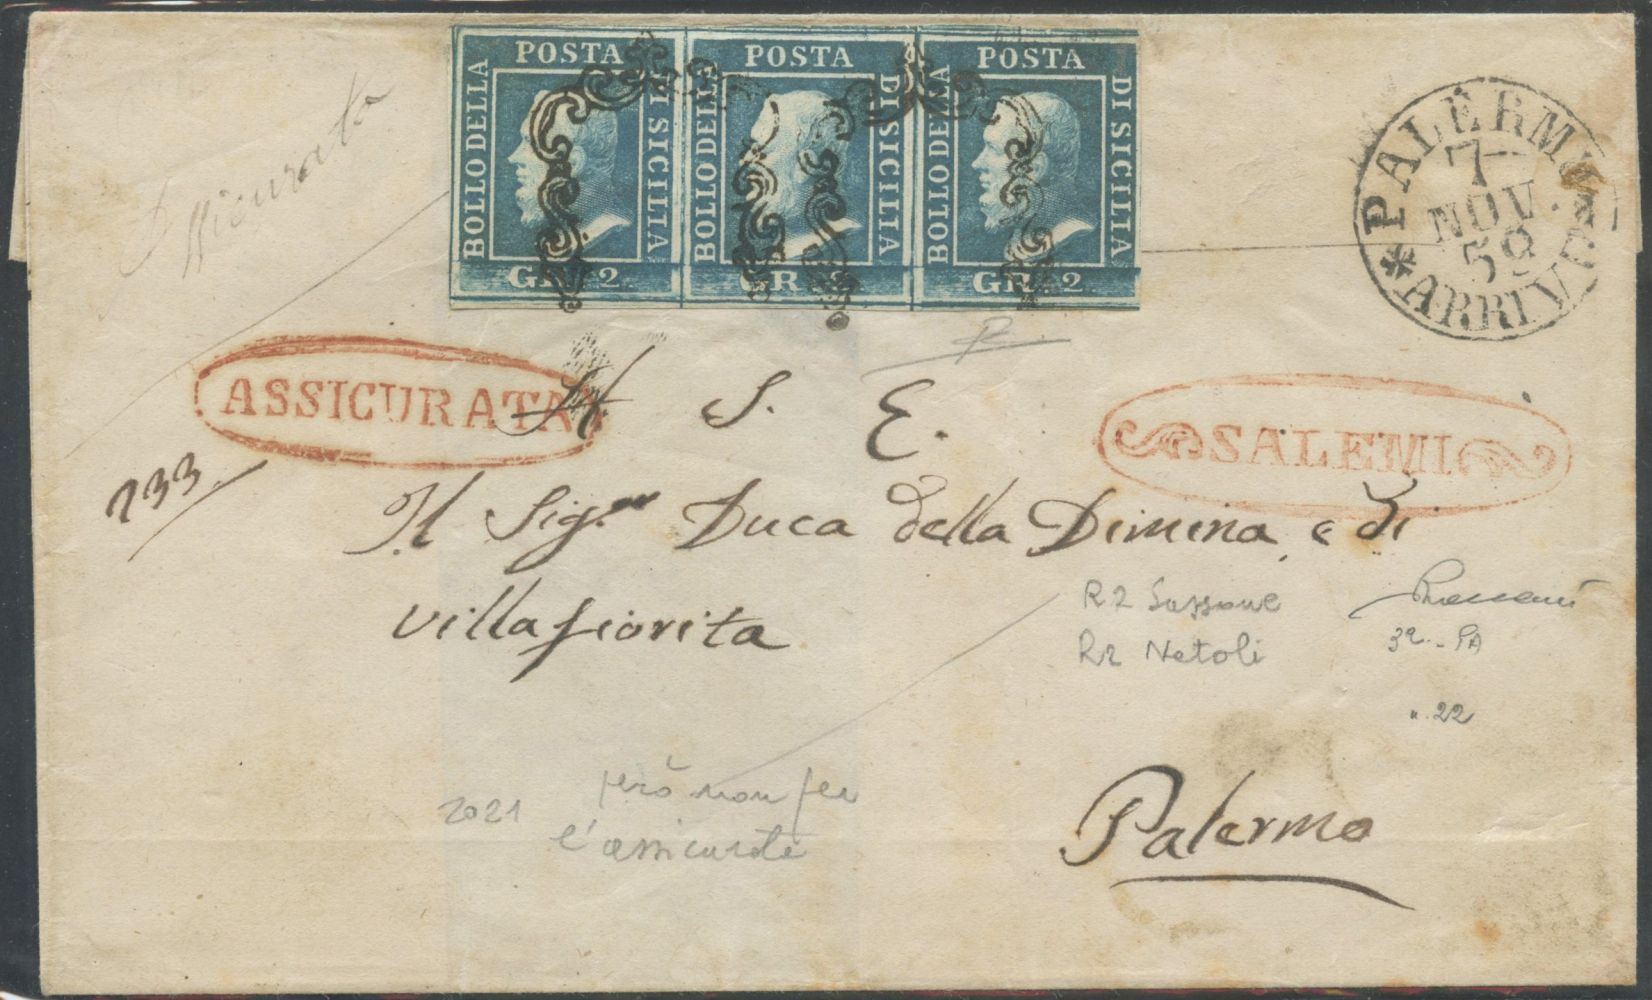 POSTA POSTA POSTA
BOLLO DELLA DI SICILIA BOLLO DELLA DI SICILIA BOLLO DELLA DI SICILIA
GR. 2. GR. 2. GR. 2.
PALERMO
7
NOV.
59
* ARRIVO
Assicurata
ASSICURATA
SALEMI
S. E.
233.
Il Sig.r Duca della Dimina e di
Villafiorita
R2 Sassone
R2 Natoli
22
2021
però non per
l'assicurata
Palermo